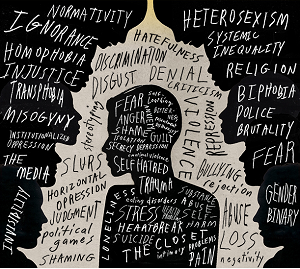 NORMATIVITY
IGNORANCE
HOMOPHOBIA
INJUSTICE
TRANSPHOBIA
MISOGYNY
INSTITUTIONALIZED
OPPRESSION
THE
MEDIA
HETEROSEXISM
SYSTEMIC
INEQUALITY
RELIGION
BIPHOBIA
POLICE
BRUTALITY
FEAR
GENDER
BINARY
HATEFULNESS
DISCRIMINATION
DISGUST
DENIAL
CRITICISM
stereotyping
VIOLENCE
SLURS
HORIZONTAL
OPPRESSION
JUDGMENT
political
games
SHAMING
BULLYING
rejection
ABUSE
LOSS
negativity
FEAR
self-
Loathing
ANGER
SHAME
ISOLATION
GUILT
SECRECY
DEPRESSION
SELF HATRED
TRAUMA
LONELINESS
eating disorders
SUBSTANCE
ABUSE
STRESS
SELF
HARM
HEARTBREAK
SUICIDE
THE CLOSET
intimacy
PROBLEMS
PAIN